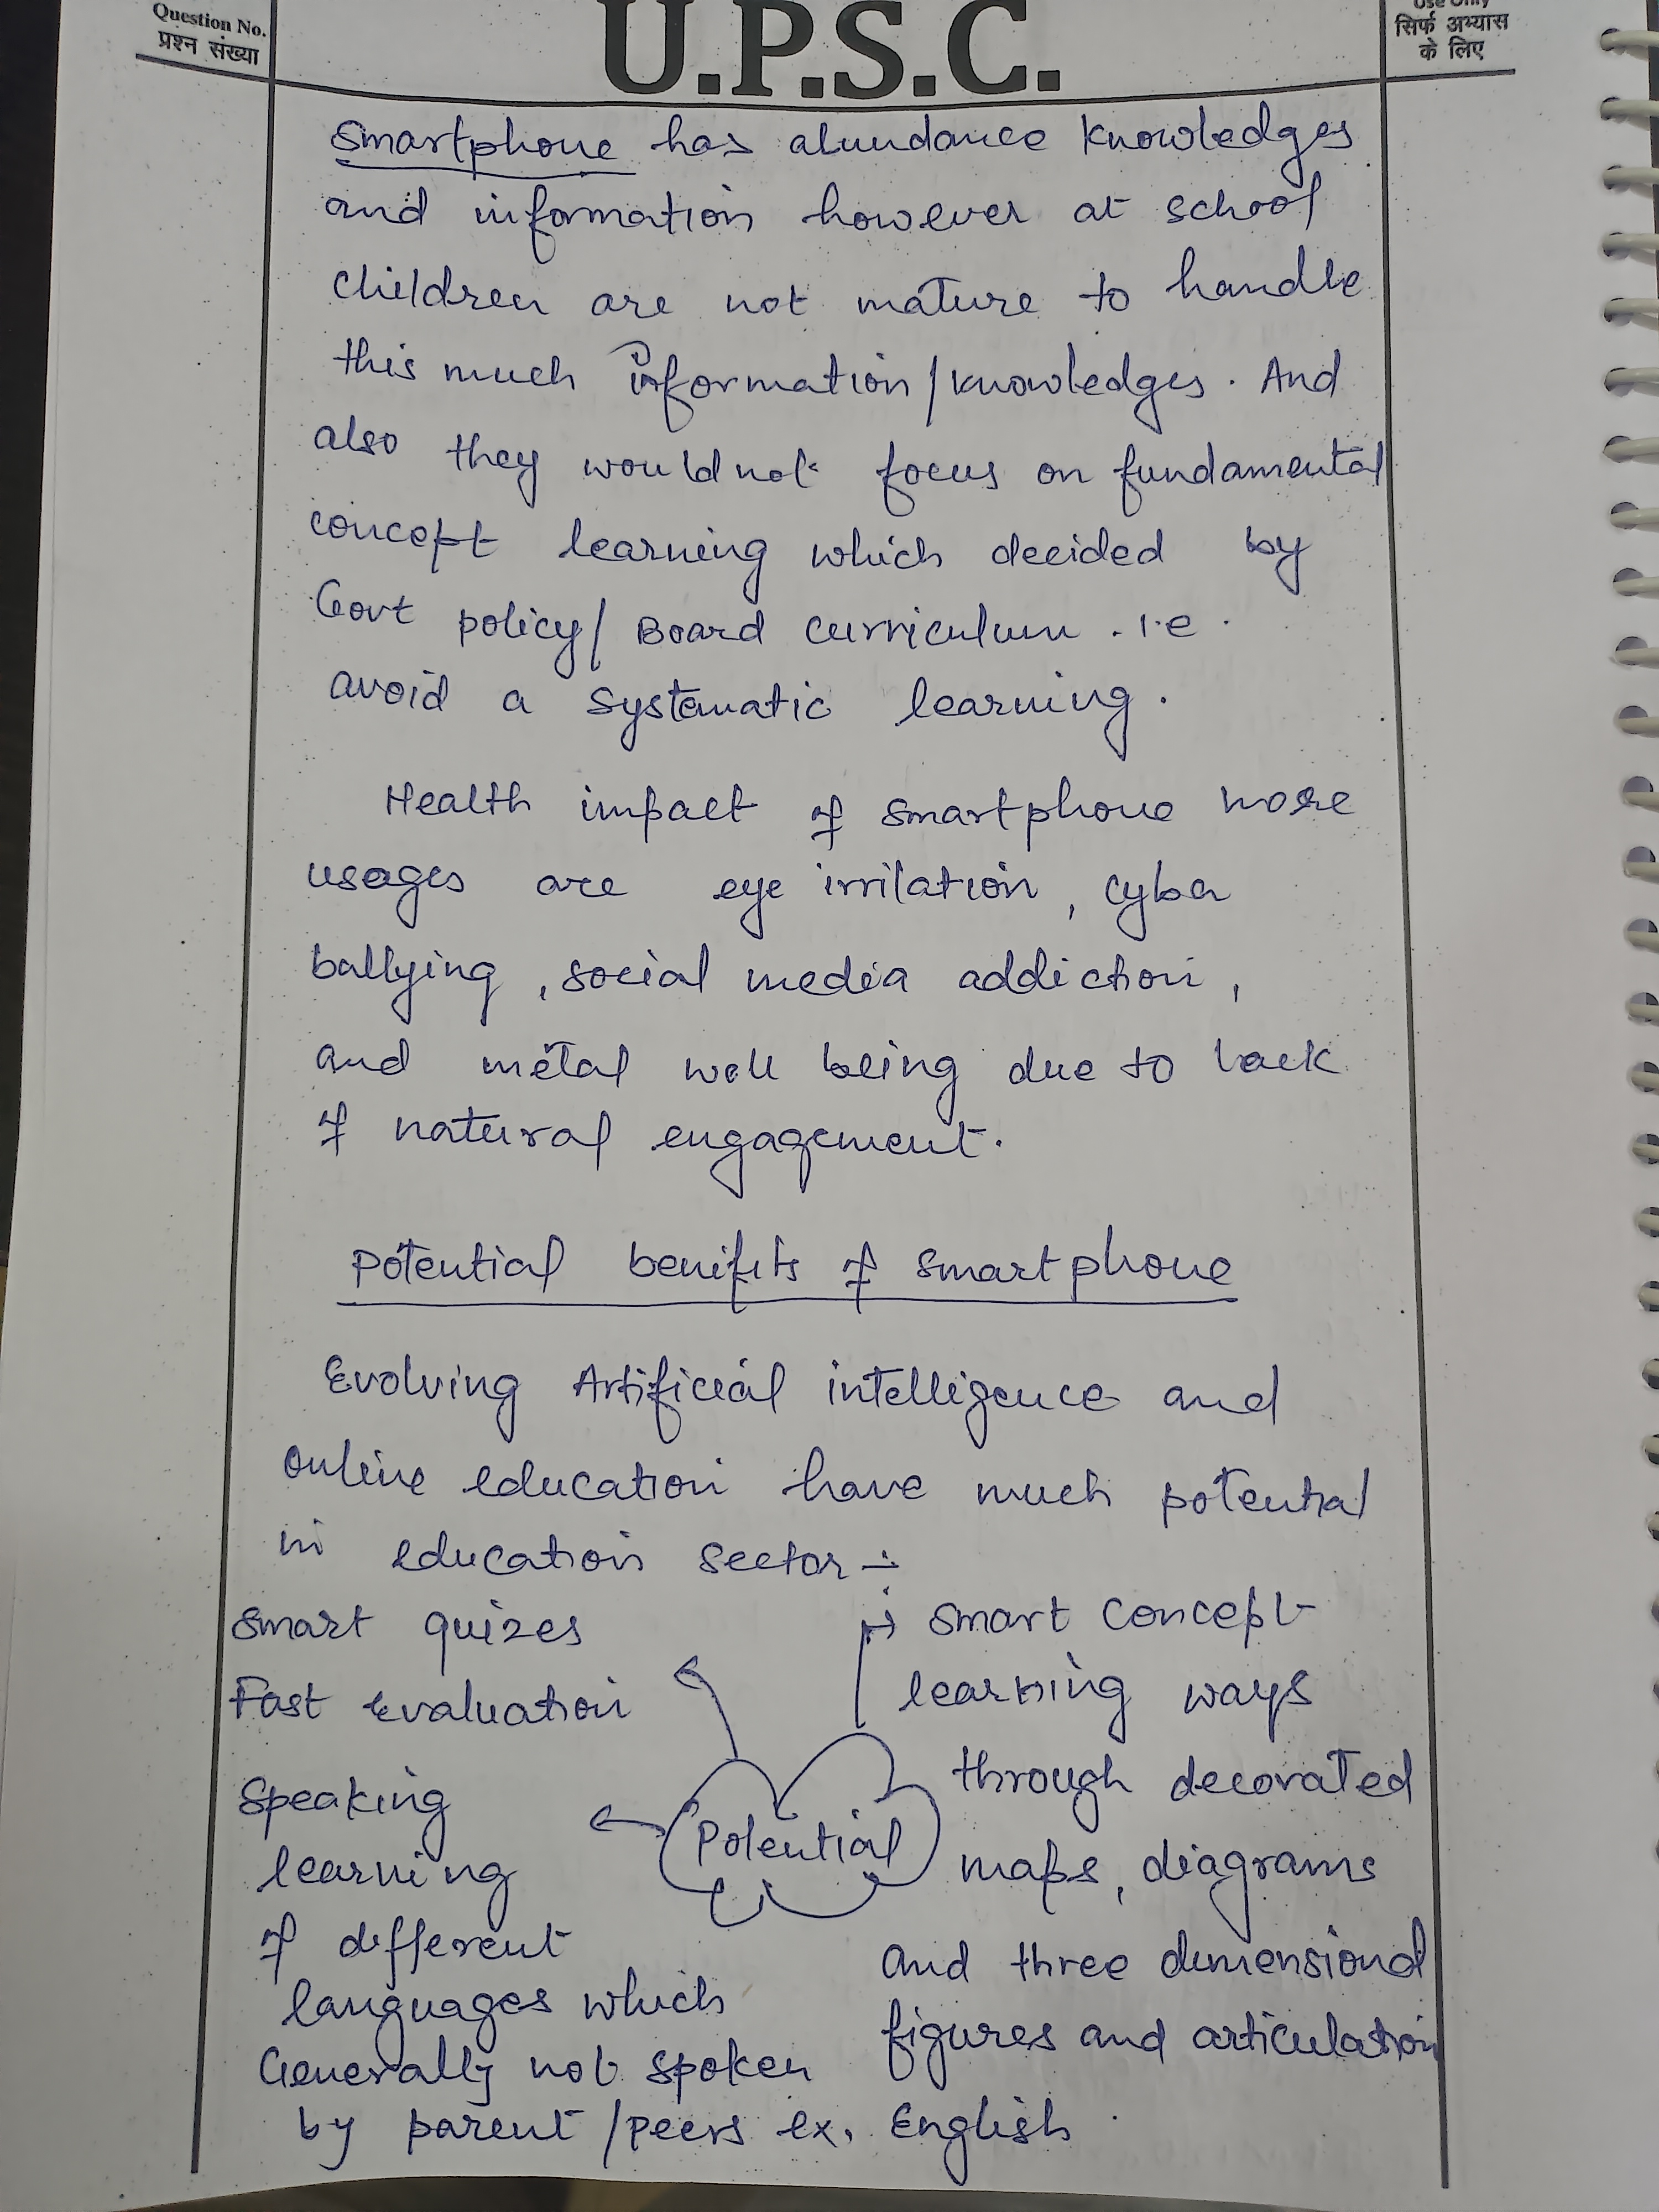 Question No.
प्रश्न संख्या
U.P.S.C.
Use Only
सिर्फ अभ्यास
के लिए
Smartphone has abundance knowledges
and information however at school
children are not mature to handle
this much information/knowledges. And
also they would not focus on fundamental
concept learning which decided by
Govt policy/Board curriculum. i.e.
avoid a systematic learning.
Health impact of smartphone more
usages are eye irritation, cyber
ballying, social media addiction,
and metal well being due to lack
of natural engagement.
Potential benifits of smartphone
Evolving Artificial intelligence and
online education have much potential
in education sector :-
smart quizes
Fast evaluation
Speaking
learning
of different
languages which
Generally not spoken
by parent/peers ex. English
Potential
smart concept
learning ways
through decorated
maps, diagrams
and three dimensional
figures and articulation